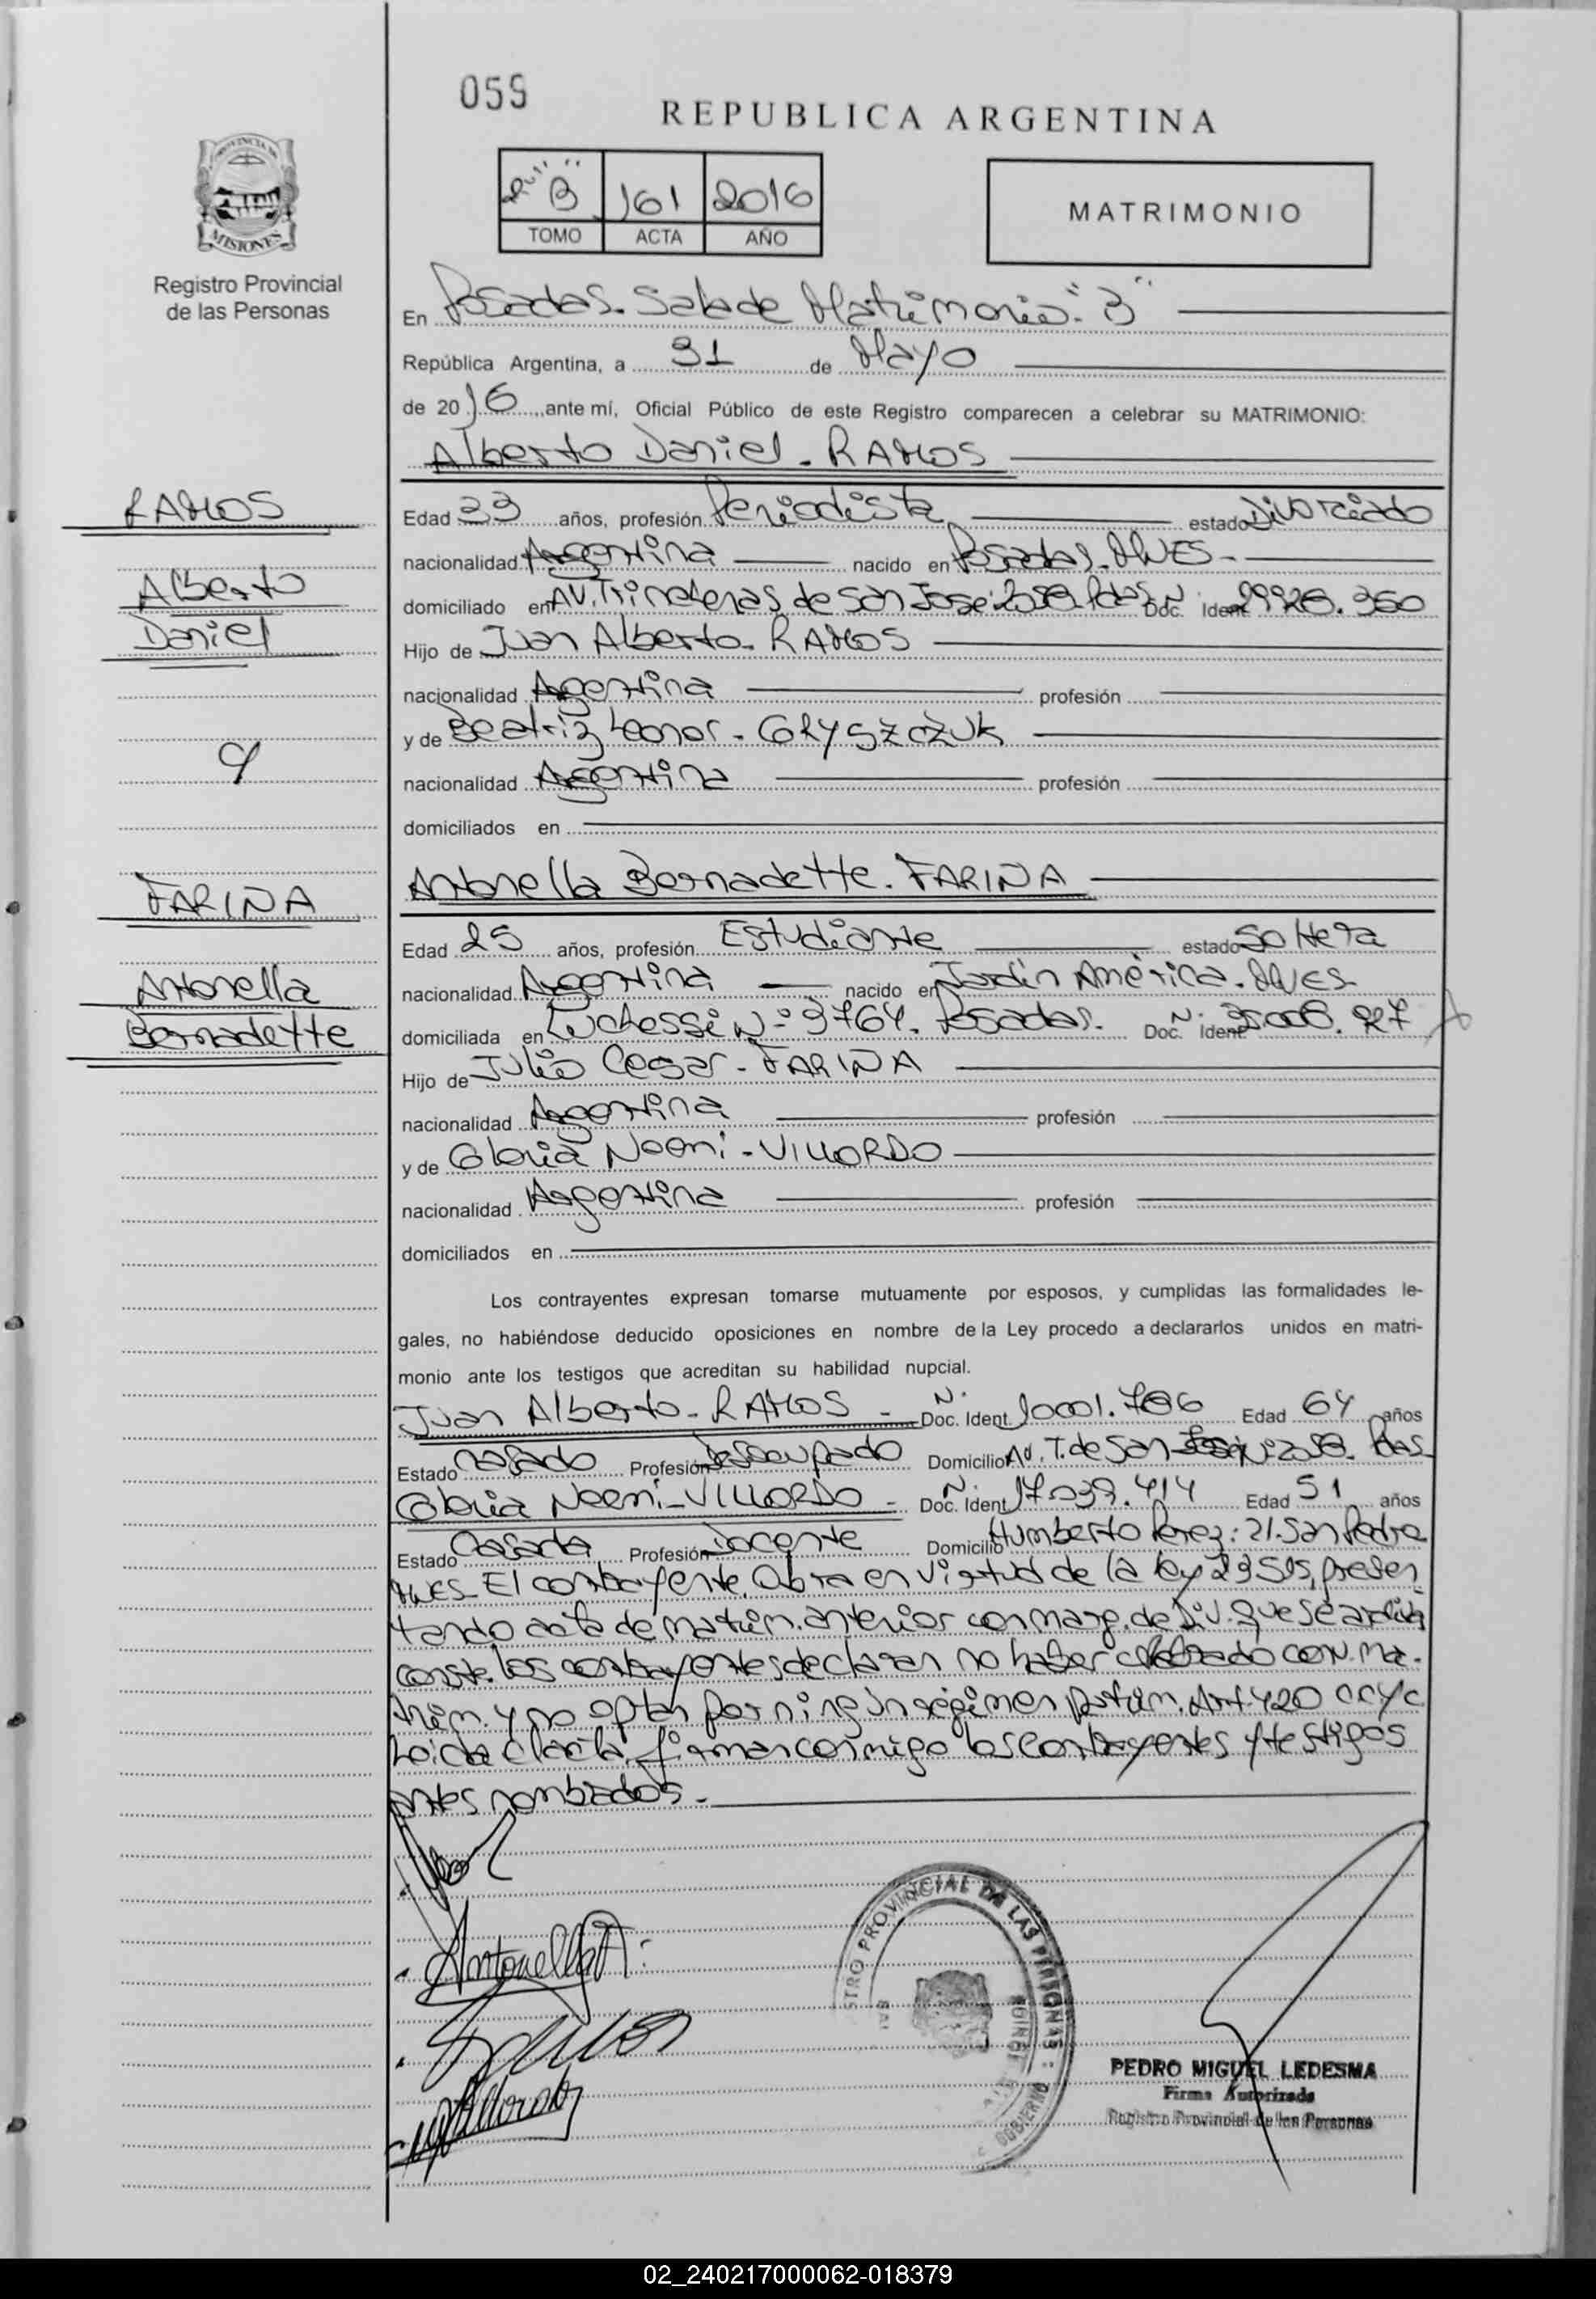 059
REPUBLICA ARGENTINA
"B" 161 2016
TOMO ACTA AÑO
MATRIMONIO
PROVINCIA DE
MISIONES
Registro Provincial
de las Personas
En Posadas. Sala de Matrimonio "B"
República Argentina, a 31 de Mayo
de 2016, ante mí, Oficial Público de este Registro comparecen a celebrar su MATRIMONIO:
Alberto Daniel - RAMOS
RAMOS
Alberto
Daniel
Edad 33 años, profesión Periodista estado Divorciado
nacionalidad Argentina nacido en Posadas. MNES -
domiciliado en AV. Trincheras de San José: 2058. Pdas. Doc. Ident. N° 29.928.360
Hijo de Juan Alberto - RAMOS
nacionalidad Argentina profesión
y de Beatriz Leonor - GRYSZCZUK
nacionalidad Argentina profesión
domiciliados en
y
FARINA
Antonella
Bernadette
Antonella Bernadette - FARINA
Edad 25 años, profesión Estudiante estado Soltera
nacionalidad Argentina nacido en Jardín América - MNES
domiciliada en Luchessi N° 3764. Posadas. Doc. Ident. N° 35.008.927
Hijo de Julio Cesar - FARINA
nacionalidad Argentina profesión
y de Gloria Noemi - VILLORDO
nacionalidad Argentina profesión
domiciliados en
Los contrayentes expresan tomarse mutuamente por esposos, y cumplidas las formalidades le-
gales, no habiéndose deducido oposiciones en nombre de la Ley procedo a declararlos unidos en matri-
monio ante los testigos que acreditan su habilidad nupcial.
Juan Alberto - RAMOS - Doc. Ident. N° 10.001.786 Edad 64 años
Estado Casado Profesión Desocupado Domicilio Av. T. de San José N° 2058. Pdas
Gloria Noemi - VILLORDO - Doc. Ident. N° 17.039.414 Edad 51 años
Estado Casada Profesión Docente Domicilio Humberto Perez: 21. San Pedro
MNES. El contrayente obra en virtud de la ley 23515, presen
tando acta de matrim. anterior con marg. de Div. que se archiva
conste. los contrayentes declaran no haber celebrado con. ma.
trim. y no optan por ningún régimen patrim. Art. 420 CCyC
Leída el acta, firman conmigo los contrayentes y testigos
antes nombrados.
Antonella
REGISTRO PROVINCIAL DE LAS PERSONAS
GOBIERNO
PEDRO MIGUEL LEDESMA
Firma Autorizada
Registro Provincial de las Personas
02_240217000062-018379